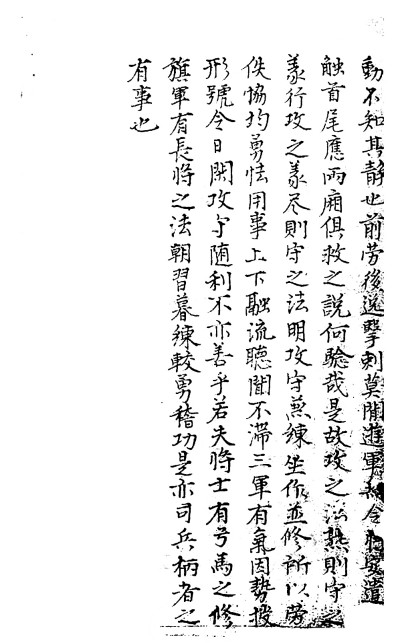 動不知其静也前劳後逸擊刺莫閑遊軍
触首尾應両廂俱救之説何驗哉是故攻之法熟則守之
義行攻之義尽則守之法明攻守兼練坐作並修所以劳
佚協均勇怯用事上下融流聽聞不滞三軍有氣因勢投
形號令日関攻守随利不亦善乎若夫将士有弓馬之修
旗軍有長将之法朝習暮練較勇稽功是亦司兵柄者之
有事也